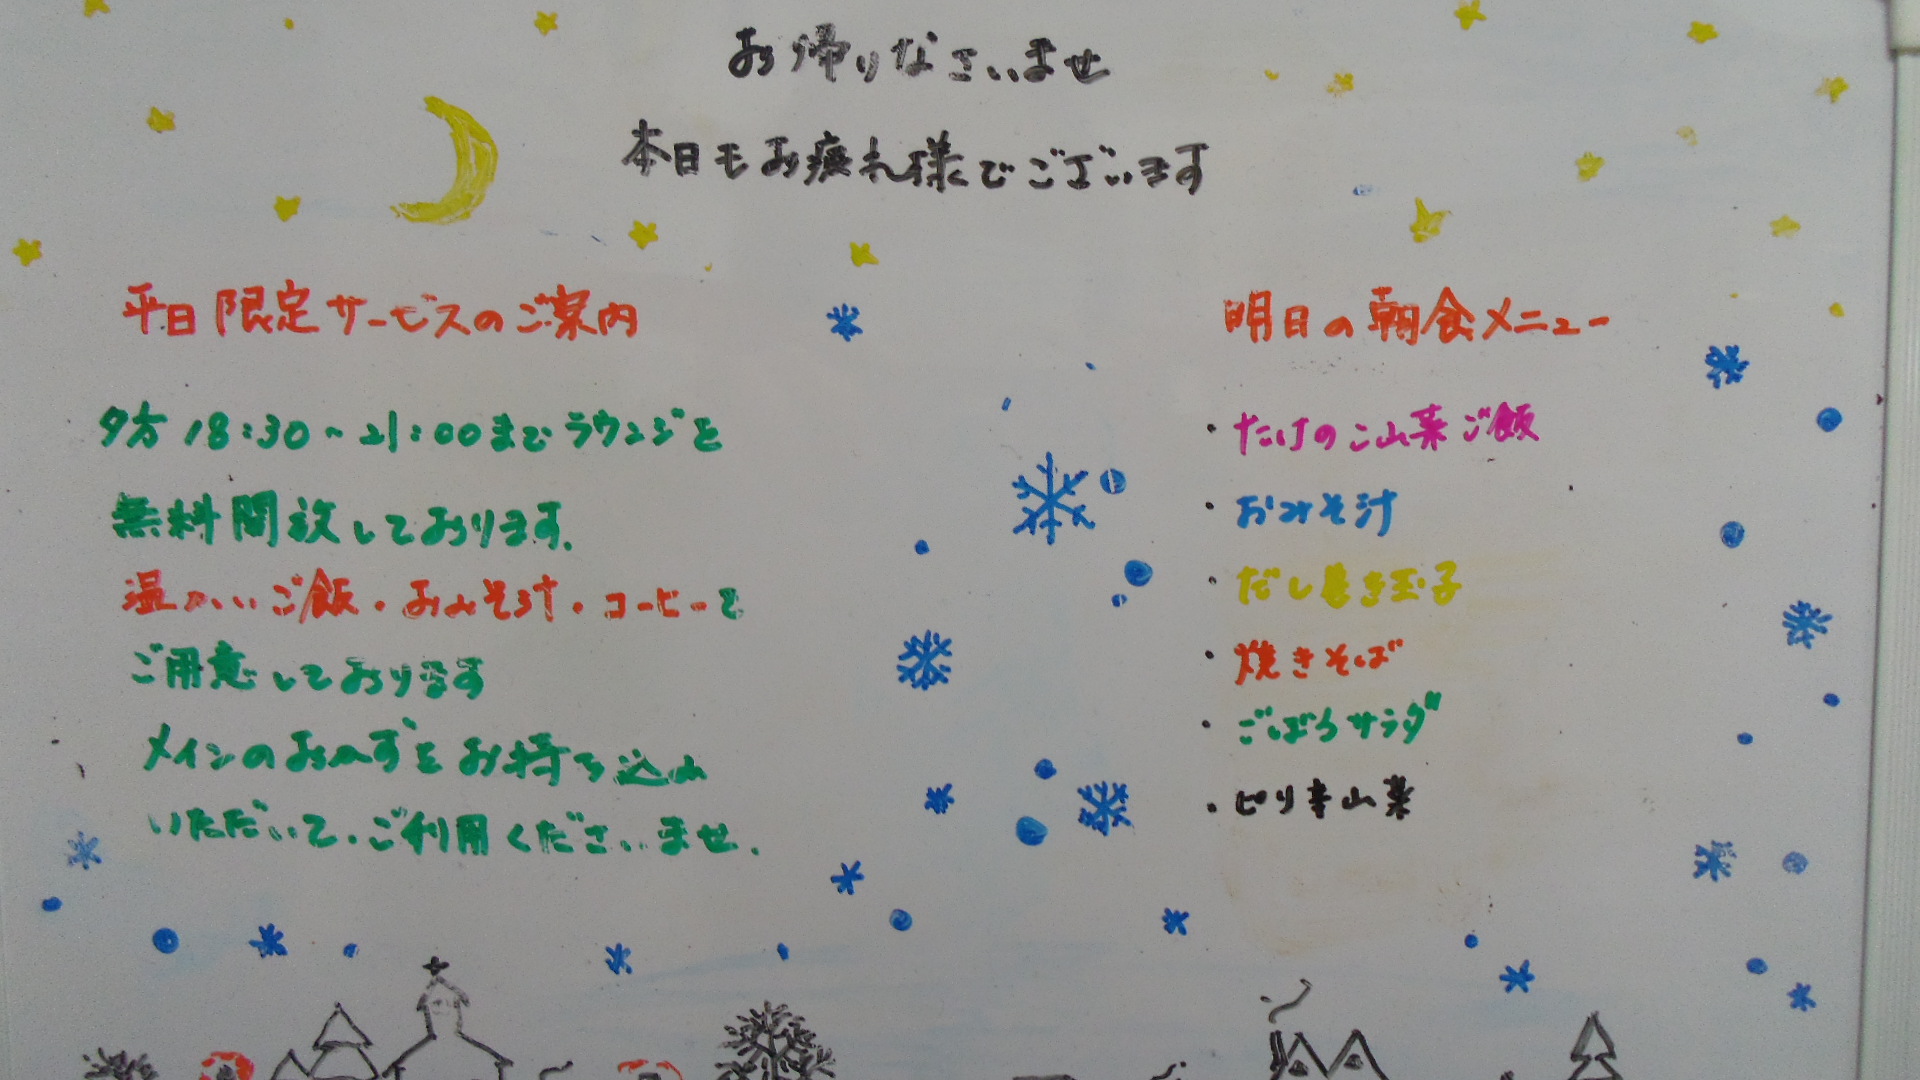 お帰りなさいませ
本日もお疲れ様でございます
平日限定サービスのご案内
夕方 18:30~21:00までラウンジを
無料開放しております.
温かいご飯・おみそ汁・コーヒーを
ご用意しております
メインのおかずをお持ち込み
いただいて、ご利用くださいませ.
明日の朝食メニュー
・たけのこ山菜ご飯
・おみそ汁
・だし巻き玉子
・焼きそば
・ごぼうサラダ
・ピリ辛山菜